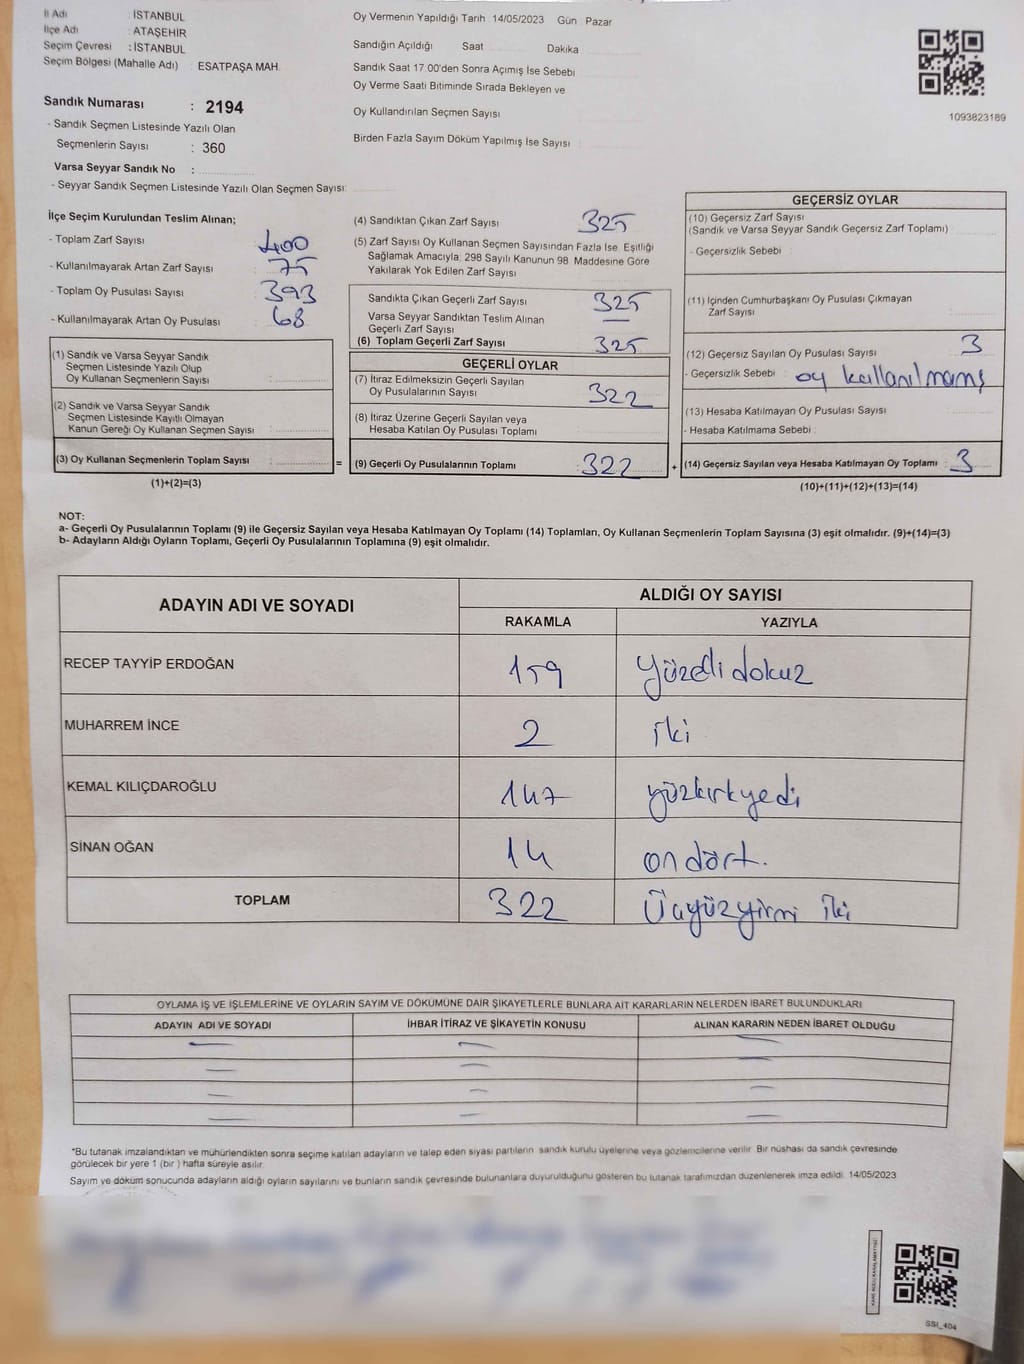 İl Adı : İSTANBUL
İlçe Adı : ATAŞEHİR
Seçim Çevresi : İSTANBUL
Seçim Bölgesi (Mahalle Adı) : ESATPAŞA MAH.
Sandık Numarası : 2194
- Sandık Seçmen Listesinde Yazılı Olan
Seçmenlerin Sayısı : 360
Varsa Seyyar Sandık No :
- Seyyar Sandık Seçmen Listesinde Yazılı Olan Seçmen Sayısı:
Oy Vermenin Yapıldığı Tarih 14/05/2023 Gün Pazar
Sandığın Açıldığı Saat Dakika
Sandık Saat 17.00'den Sonra Açımış İse Sebebi
Oy Verme Saati Bitiminde Sırada Bekleyen ve
Oy Kullandırılan Seçmen Sayısı
Birden Fazla Sayım Döküm Yapılmış İse Sayısı
1093823189
İlçe Seçim Kurulundan Teslim Alınan;
- Toplam Zarf Sayısı : 400
- Kullanılmayarak Artan Zarf Sayısı : 75
- Toplam Oy Pusulası Sayısı : 393
- Kullanılmayarak Artan Oy Pusulası : 68
(1) Sandık ve Varsa Seyyar Sandık
Seçmen Listesinde Yazılı Olup
Oy Kullanan Seçmenlerin Sayısı :
(2) Sandık ve Varsa Seyyar Sandık
Seçmen Listesinde Kayıtlı Olmayan
Kanun Gereği Oy Kullanan Seçmen Sayısı :
(3) Oy Kullanan Seçmenlerin Toplam Sayısı :
(1)+(2)=(3)
(4) Sandıktan Çıkan Zarf Sayısı 325
(5) Zarf Sayısı Oy Kullanan Seçmen Sayısından Fazla İse, Eşitliği
Sağlamak Amacıyla; 298 Sayılı Kanunun 98. Maddesine Göre
Yakılarak Yok Edilen Zarf Sayısı
Sandıkta Çıkan Geçerli Zarf Sayısı 325
Varsa Seyyar Sandıktan Teslim Alınan
Geçerli Zarf Sayısı —
(6) Toplam Geçerli Zarf Sayısı 325
GEÇERLİ OYLAR
(7) İtiraz Edilmeksizin Geçerli Sayılan
Oy Pusulalarının Sayısı 322
(8) İtiraz Üzerine Geçerli Sayılan veya
Hesaba Katılan Oy Pusulası Toplamı
= (9) Geçerli Oy Pusulalarının Toplamı : 322
GEÇERSİZ OYLAR
(10) Geçersiz Zarf Sayısı
(Sandık ve Varsa Seyyar Sandık Geçersiz Zarf Toplamı)
- Geçersizlik Sebebi :
(11) İçinden Cumhurbaşkanı Oy Pusulası Çıkmayan
Zarf Sayısı
(12) Geçersiz Sayılan Oy Pusulası Sayısı 3
- Geçersizlik Sebebi : oy kullanılmamış
(13) Hesaba Katılmayan Oy Pusulası Sayısı
- Hesaba Katılmama Sebebi :
+ (14) Geçersiz Sayılan veya Hesaba Katılmayan Oy Toplamı : 3
(10)+(11)+(12)+(13)=(14)
NOT:
a- Geçerli Oy Pusulalarının Toplamı (9) ile Geçersiz Sayılan veya Hesaba Katılmayan Oy Toplamı (14) Toplamları, Oy Kullanan Seçmenlerin Toplam Sayısına (3) eşit olmalıdır. (9)+(14)=(3)
b- Adayların Aldığı Oyların Toplamı, Geçerli Oy Pusulalarının Toplamına (9) eşit olmalıdır.
ADAYIN ADI VE SOYADI
ALDIĞI OY SAYISI
RAKAMLA YAZIYLA
RECEP TAYYİP ERDOĞAN 159 yüzelli dokuz
MUHARREM İNCE 2 iki
KEMAL KILIÇDAROĞLU 147 yüzkırkyedi
SİNAN OĞAN 14 on dört.
TOPLAM 322 Üçyüzyirmi iki
OYLAMA İŞ VE İŞLEMLERİNE VE OYLARIN SAYIM VE DÖKÜMÜNE DAİR ŞİKAYETLERLE BUNLARA AİT KARARLARIN NELERDEN İBARET BULUNDUKLARI
ADAYIN ADI VE SOYADI İHBAR İTİRAZ VE ŞİKAYETİN KONUSU ALINAN KARARIN NEDEN İBARET OLDUĞU
*Bu tutanak imzalandıktan ve mühürlendikten sonra seçime katılan adayların ve talep eden siyasi partilerin sandık kurulu üyelerine veya gözlemcilerine verilir. Bir nüshası da sandık çevresinde
görülecek bir yere 1 (bir ) hafta süreyle asılır.
Sayım ve döküm sonucunda adayların aldığı oyların sayılarını ve bunların sandık çevresinde bulunanlara duyurulduğunu gösteren bu tutanak tarafımızdan düzenlenerek imza edildi. 14/05/2023
SSI_404